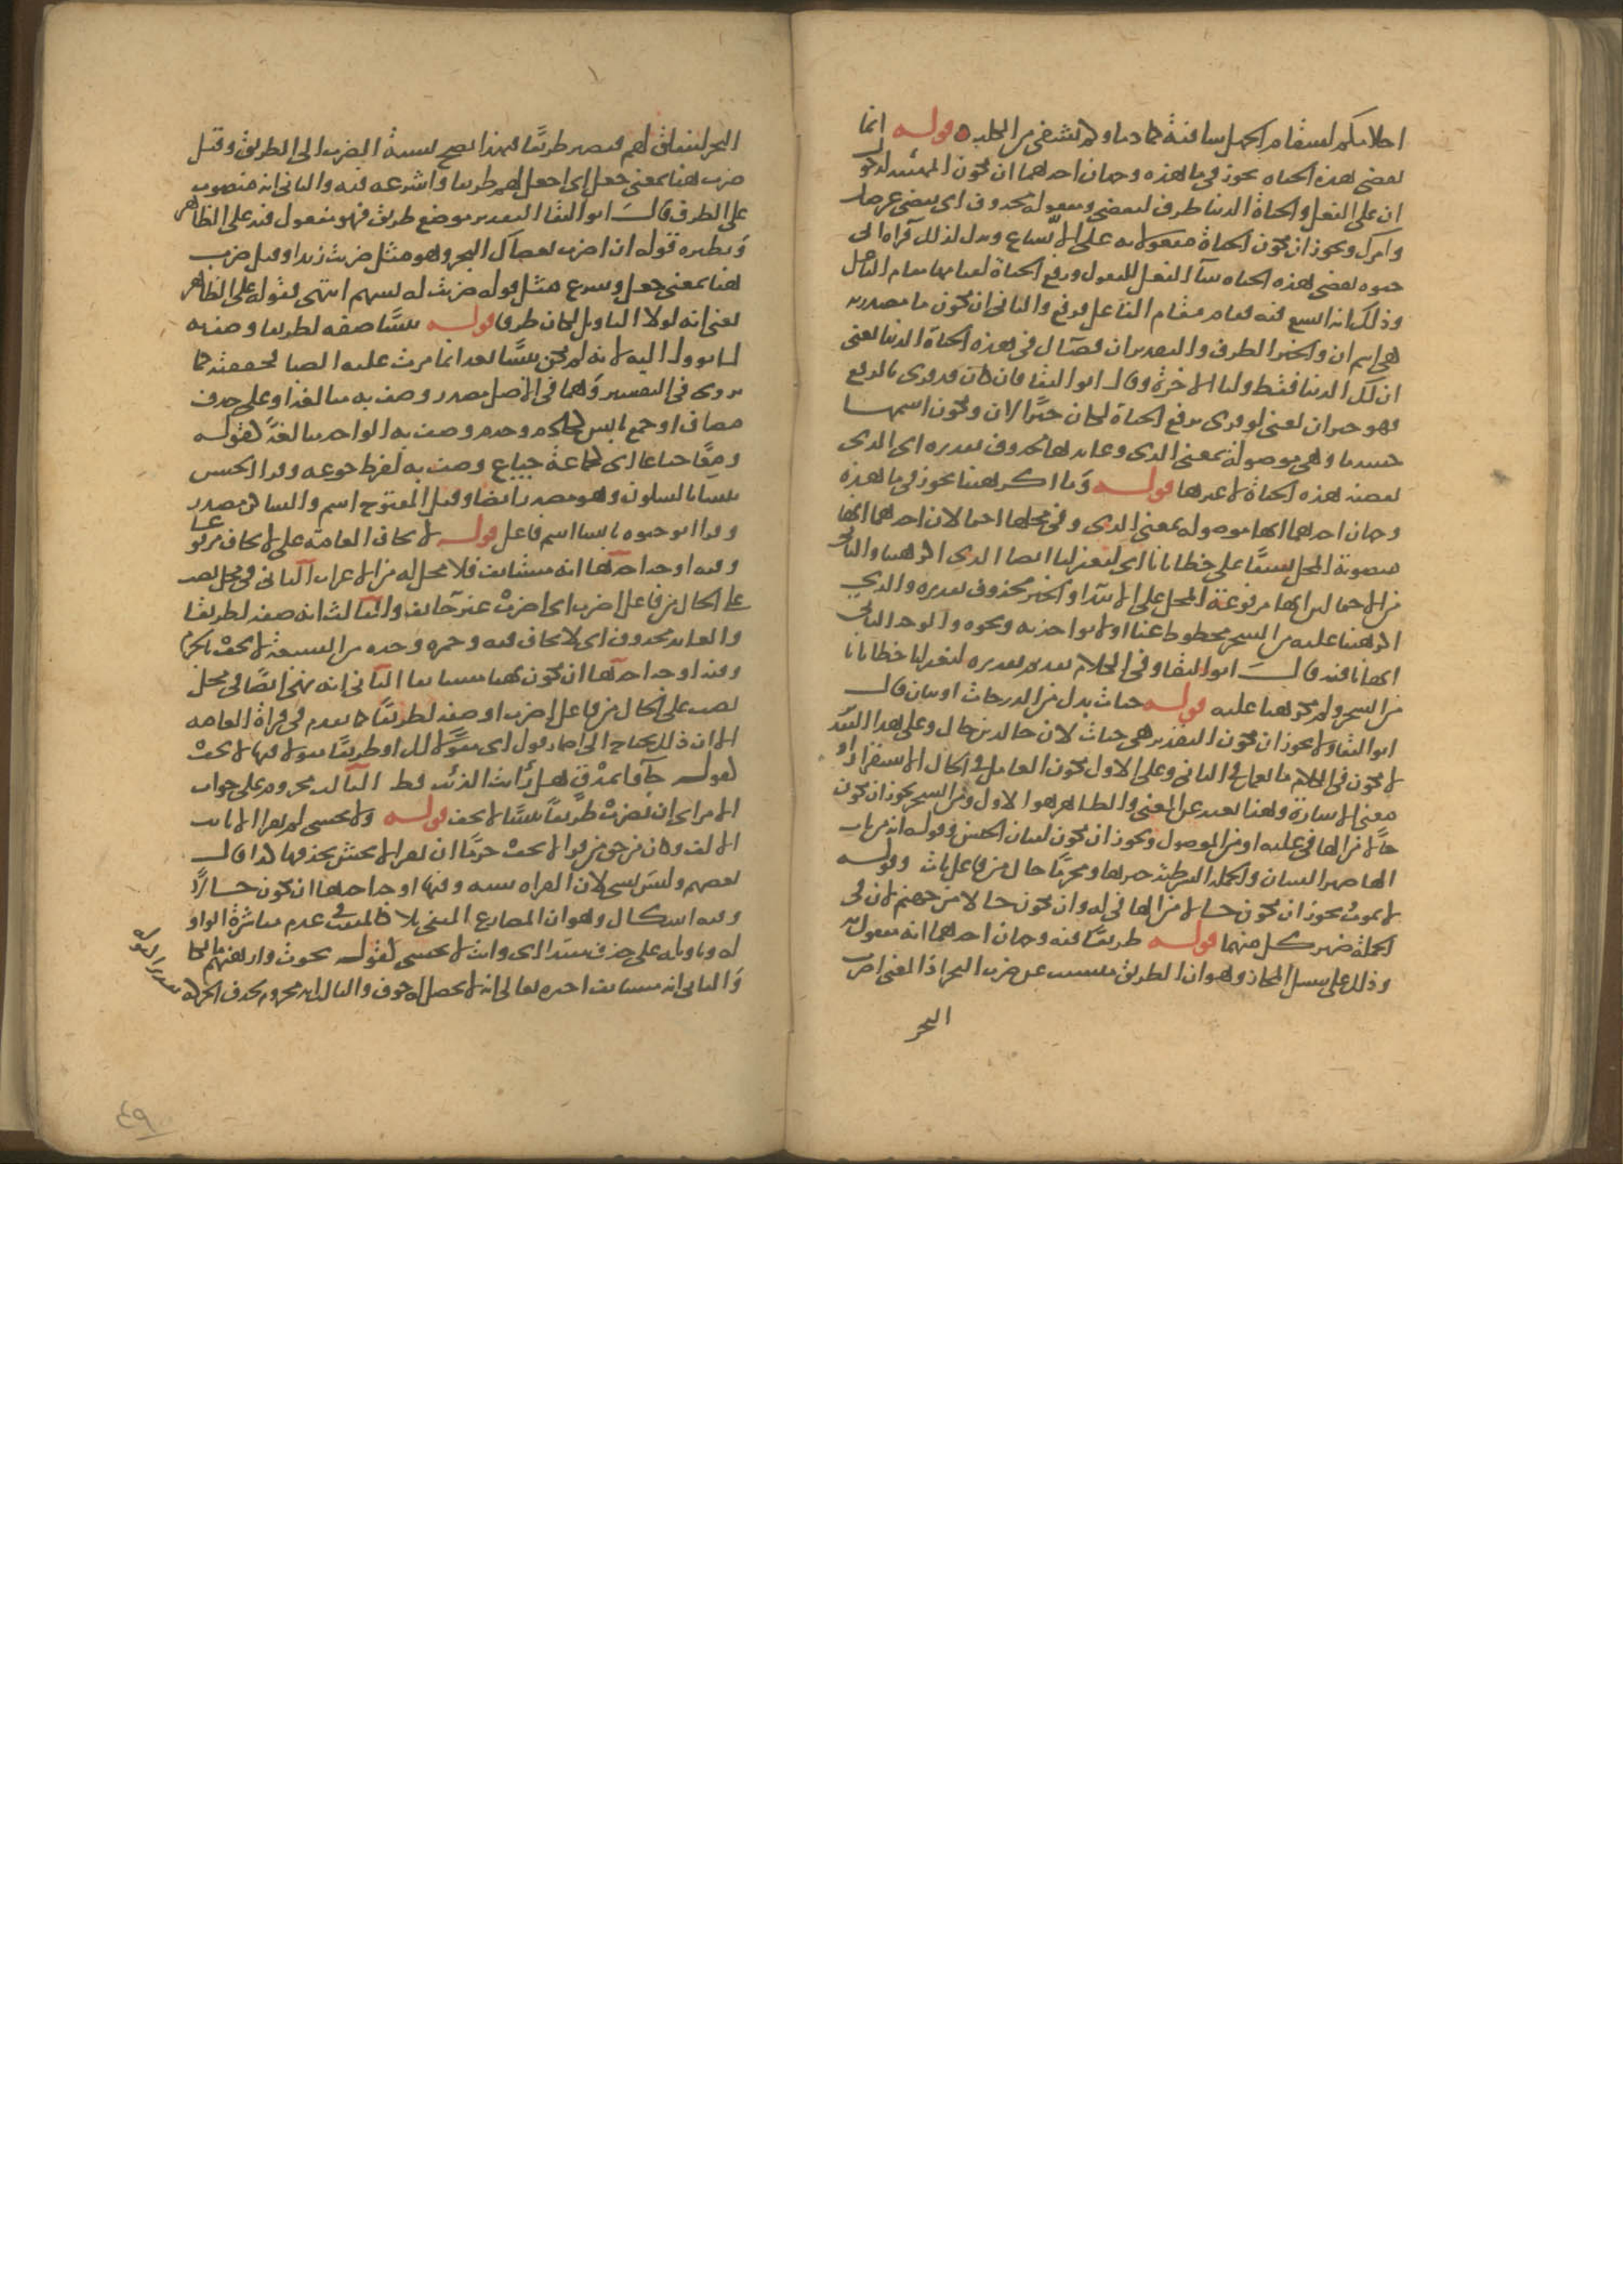 احلامكم لسقام الجهل شافية كما دماؤكم تشفى من الكلب قوله انما
تقضى هذه الحياه يجوز فى ما هذه وجهان احدهما ان تكون المهيئه لدخول
ان على الفعل والحياة الدنيا ظرف لتقضى ومفعوله محذوف اى تقضى غرضك
وامرك ويجوز ان تكون الحياة مفعولا به على الاتساع ويدل لذلك قراه ابى
حيوه تقضى هذه الحياه ببنا الفعل للمفعول ورفع الحياة لقيامها مقام الفاعل
وذلك انه اتسع فيه فقام مقام الفاعل فرفع والثانى ان تكون ما مصدريه
هى اسم ان والخبر الظرف والتقدير ان قضاك فى هذه الحياة الدنيا يعنى
ان لك الدنيا فقط ولنا الاخرة وقال ابو البقا فان كان قد قرى بالرفع
فهو خبر ان يعنى لو قرى برفع الحياة لكان خبرا لان وتكون اسمها
حينئذ ما وهى موصولة بمعنى الذى وعايدها محذوف تقديره اى الذى
تقضيه هذه الحياة لا غيرها قوله وما اكرهتنا يجوز فى ما هذه
وجهان احدهما انها موصوله بمعنى الذى وفى محلها احتمالان احدهما انها
منصوبة المحل نسقا على خطايانا اى ليغفر لنا ايضا الذى اكرهتنا والثانى
من الاحتمالين انها مرفوعة المحل على الابتدا والخبر محذوف تقديره والذي
اكرهتنا عليه من السحر محطوط عنا او لا نواخذ به ونحوه والوجه الثانى
انها نافيه قال ابو البقا وفى الكلام تقديم تقديره ليغفر لنا خطايانا
من السحر ولم تكرهنا عليه قوله جنات بدل من الدرجات او بيان قال
ابو البقا ولا يجوز ان تكون التقدير هى جنات لان خالدين حال وعلى هذا التقدير
لا يكون فى الكلام ما يعمل فى الثانى وعلى الاول يكون العامل فى الحال الاستقرار او
معنى الاشارة وهنا تقديم على المعنى والظاهر هو الاول ومن السحر يجوز ان تكون
حالا من الها فى عليه او من الموصول ويجوز ان تكون لبيان الجنس وقوله انه من يات
الها ضمير الشان والجمله الشرطيه خبرها ومجرما حال من فاعل يات وقوله
لا يموت يجوز ان تكون حالا من الها فى له وان تكون حالا من جهنم لان فى
الجملة ضمير كل منهما قوله طريقا فيه وجهان احدهما انه مفعول به
وذلك على سبيل المجاز وهو ان الطريق متسبب عن ضرب البحر اذ المعنى اضرب
البحر
البحر لينفلق لهم فيصير طريقا فبهذا يصح نسبة الضرب الى الطريق وقيل
ضرب هنا بمعنى جعل اى اجعل لهم طريقا واشرعه فيه والثانى انه منصوب
على الظرف قال ابو البقا التقدير موضع طريق فهو مفعول فيه على الظاهر
ونظيره قوله ان اضرب بعصاك البحر وهو مثل ضربت زيدا وقيل ضرب
هنا بمعنى جعل وشرع مثل قوله ضربت له بسهم انتهى فقوله على الظاهر
يعنى انه لولا التاويل لكان ظرفا قوله يبسا صفه لطريقا وصف به
لما يوول اليه لانه لم يكن يبسا بعد انما مرت عليه الصبا فجففته كما
يروى فى التفسير وهما فى الاصل مصدر وصف به مبالغة او على حذف
مضاف او جمع يابس كخادم وخدم وصف به الواحد مبالغة كقوله
ومعا جياعا اى كجماعة جياع وصف به لفرط جوعه وقرا الحسن
يبسا بالسكون وهو مصدر ايضا وقيل المفتوح اسم والساكن مصدر
وقرا ابو حيوه يابسا اسم فاعل قوله لا تخاف العامة على لا تخاف مرفوعا
وفيه اوجه احدها انه مستانف فلا محل له من الاعراب الثانى فى محل نصب
على الحال من فاعل اضرب اى اضرب غير خايف والثالث انه صفه لطريقا
والعايد محذوف اى لا تخاف فيه وحمزه وحده من السبعة لا تخف بالجزم
وفيه اوجه احدها ان تكون نهيا مستانفا الثانى انه نهى ايضا فى محل
نصب على الحال من فاعل اضرب او صفه لطريقا كما تقدم فى قراة العامه
الا ان ذلك يحتاج الى اضمار قول اى مقولا لك او طريقا مقولا فيها لا تخف
كقوله جاوا بمذق هل رايت الذئب قط الثالث مجزوم على جواب
الامر اى ان تضرب طريقا يبسا لا تخف قوله ولا تخشى لم يقرا الا ثابت
الالف وكان من حق من قرا لا تخف جزما ان يقرا لا تخش بحذفها كذا قال
بعضهم وليس بشى لان القراه سنه وفيها اوجه احدها ان تكون حالا
وفيه اشكال وهو ان المضارع المنفى بلا كالمثبت فى عدم مباشرة الواو
له وتاويله على حذف مبتدا اى وانت لا تخشى كقوله نجوت وارهنهم مالكا
والثانى انه مستانف اخبره تعالى انه لا يحصل له خوف والثالث انه مجزوم بحذف الحركه
تقديرا كقوله
٤٩